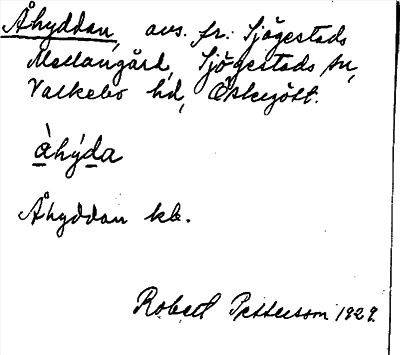 Åhyddan, avs. fr. Sjögestads
Mellangård, Sjögestads sn,
Valkebo hd, Östergötl.
àhýda
Åhyddan kb.
Robert Pettersson 1929.